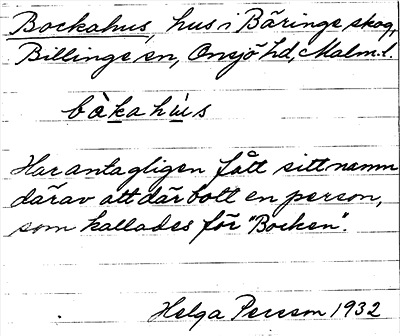 Bockahus, hus i Bäringe skog,
Billinge sn, Onsjö hd, Malm. l.
bòkahùs
Har antagligen fått sitt namn
därav att där bott en person,
som kallades för "Bocken".
Helga Persson 1932